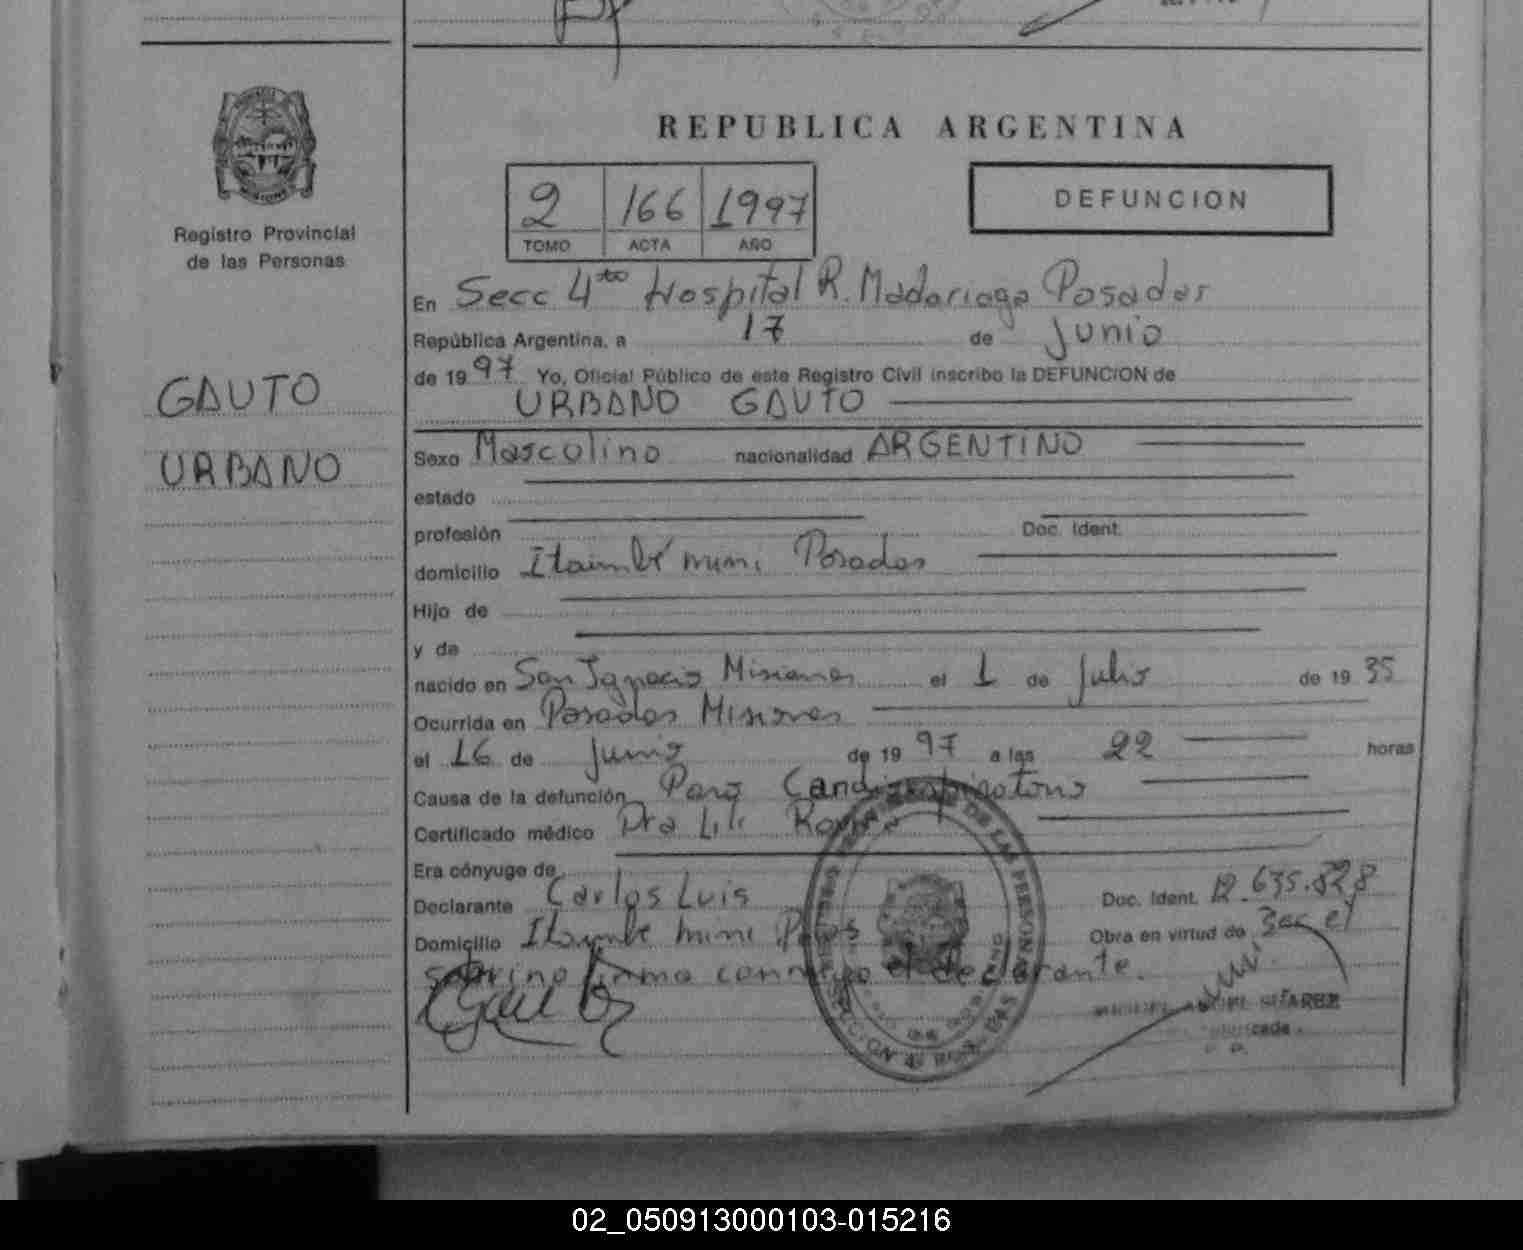 REPUBLICA ARGENTINA
2 166 1997
TOMO ACTA AÑO
DEFUNCION
Registro Provincial
de las Personas
GAUTO
URBANO
En Secc 4to Hospital R. Madariaga Posadas
República Argentina, a 17 de Junio
de 1997 Yo, Oficial Público de este Registro Civil inscribo la DEFUNCION de
URBANO GAUTO
Sexo Mascolino nacionalidad ARGENTINO
estado
profesión Doc. Ident.
domicilio Itaimbé mini Posadas
Hijo de
y de
nacido en San Ignacio Misiones el 1 de Julio de 1935
Ocurrida en Posadas Misiones
el 16 de Junio de 1997 a las 22 horas
Causa de la defunción Paro
Certificado médico Dra Lili
Era cónyuge de
Declarante Carlos Luis Doc. Ident. 12.635.828
Domicilio Itaimbé mini Obra en virtud de Ser el
sobrino firma conmigo el declarante.
02_050913000103-015216